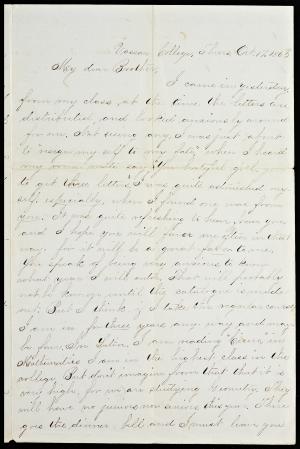 Vassar College, Thurs Oct. 12 1865
My dear Brother,
I came in yesterday
from my class, at the time the letters are
distributed, and looked anxiously around
for one. Not seeing any, I was just about
to "resign my self to my fate," when I heard
my room mate say "You hateful girl, you
to get three letters" I was quite astonished my-
self, especially, when I found one was from
you. It was quite refreshing to hear from you
and I hope you will favor me often in that
way, for it will be a great favor to me.
You speak of being very anxious to know
what year I will enter. That will probably
not be known until the catalogue is made
out. But I think if I take the regular course,
I am in for three years any way and may
be four. In Latin, I am reading Cicero, in
Mathematics I am in the highest class in the
college. But don't imagine from that that it is
very high, for we are studying Geometry. They
will have no juniors nor seniors this year. There
goes the dinner bell and I must leave you